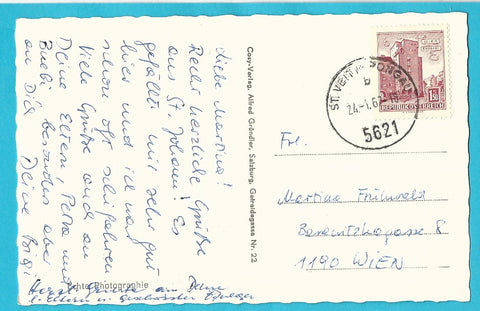 Liebe Martina!
Recht herzliche Grüße
aus St. Johann! Es
gefällt mir sehr gut
hier und ich war
schon oft schifahren
Viele Grüße auch an
Deine Eltern, Petra und
Bubi besonders aber
an Dich Deine Birgi
Herzl. Grüsse an Deine
Eltern u. Geschwister
Echte Photographie
Cosy-Verlag, Alfred Gründler, Salzburg, Getreidegasse Nr. 22
ST. VEIT IM PONGAU
b
24.-1.67
5621
REPUBLIK ÖSTERREICH
Frl.
Martina Frühwald
8
1190 WIEN